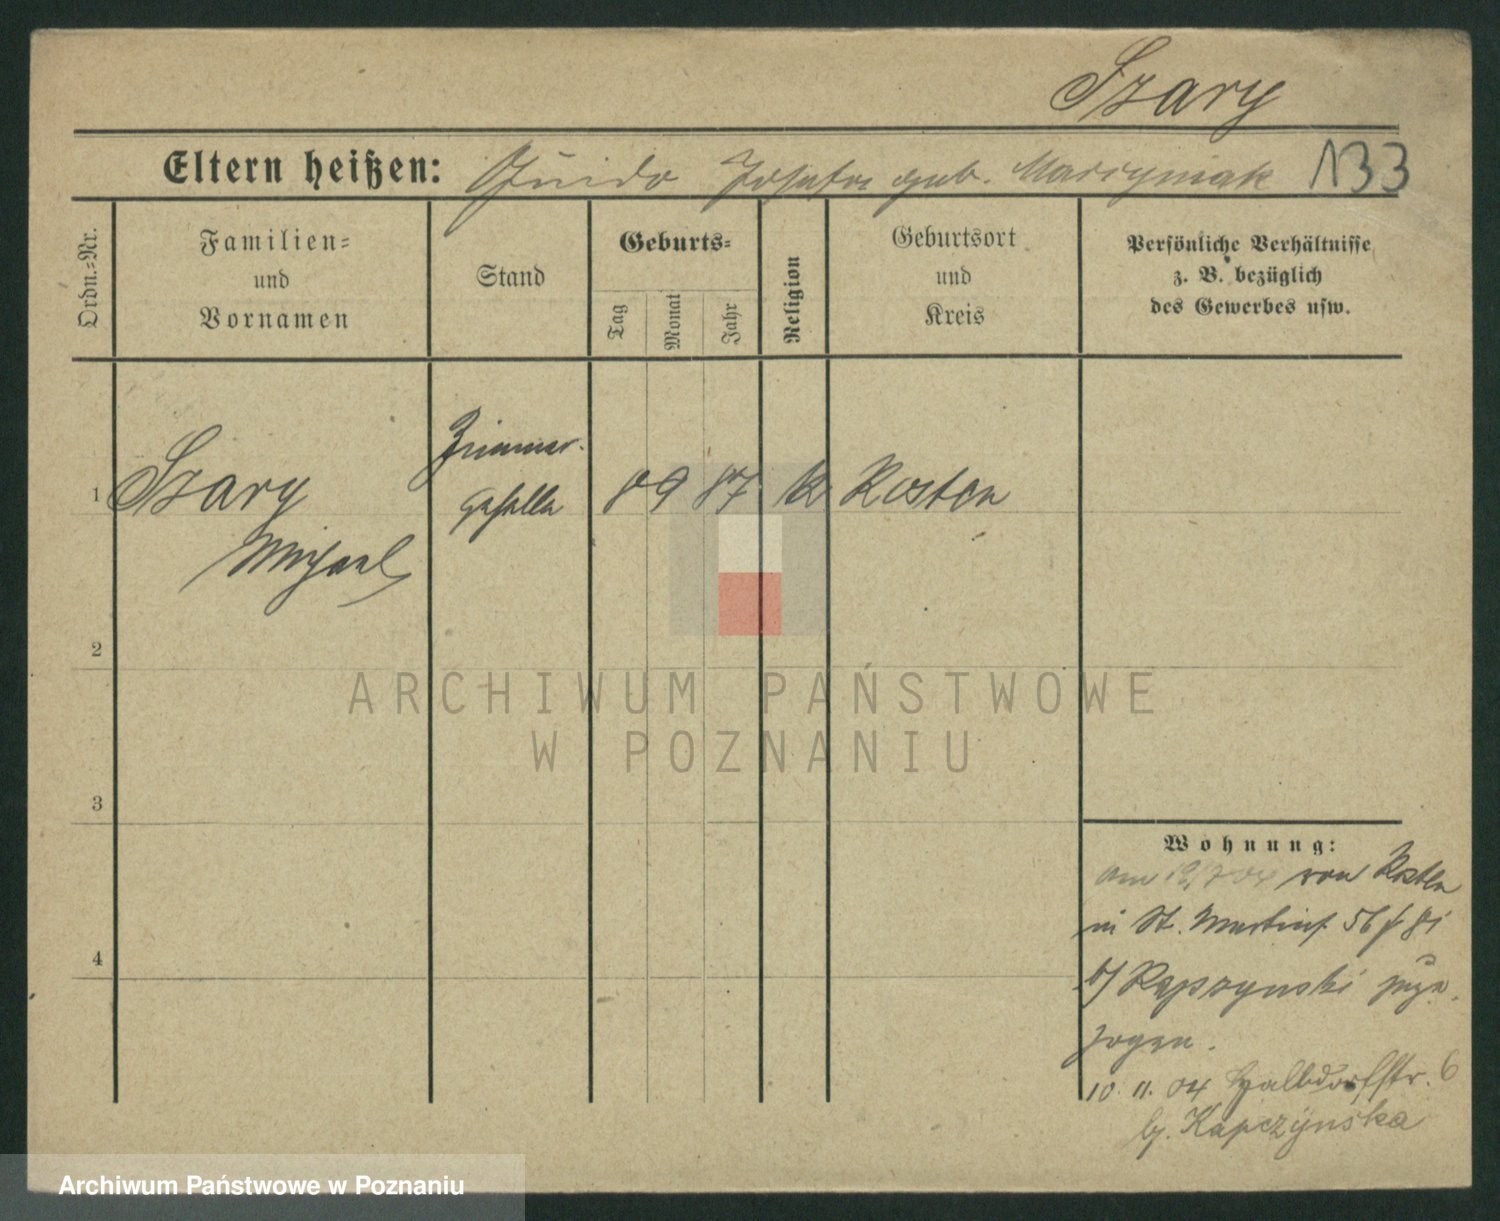 Szary
Eltern heißen: Guido Josefa geb. Marcyniak 133
Ordn.-Nr.
Familien-
und
Vornamen
Stand
Geburts-
Tag
Monat
Jahr
Religion
Geburtsort
und
Kreis
Persönliche Verhältnisse
z. B. bezüglich
des Gewerbes usw.
Zimmer-
1 Szary geselle 8 9 87 k Kosten
Michael
2
3
4
Wohnung:
am 19/7 04 von Kosten
in St. Martinst. 56
b/ Kapczynski zuge-
zogen.
10. 11. 04 Halbdorfstr. 6
b. Kapczynska
ARCHIWUM PAŃSTWOWE
W POZNANIU
Archiwum Państwowe w Poznaniu